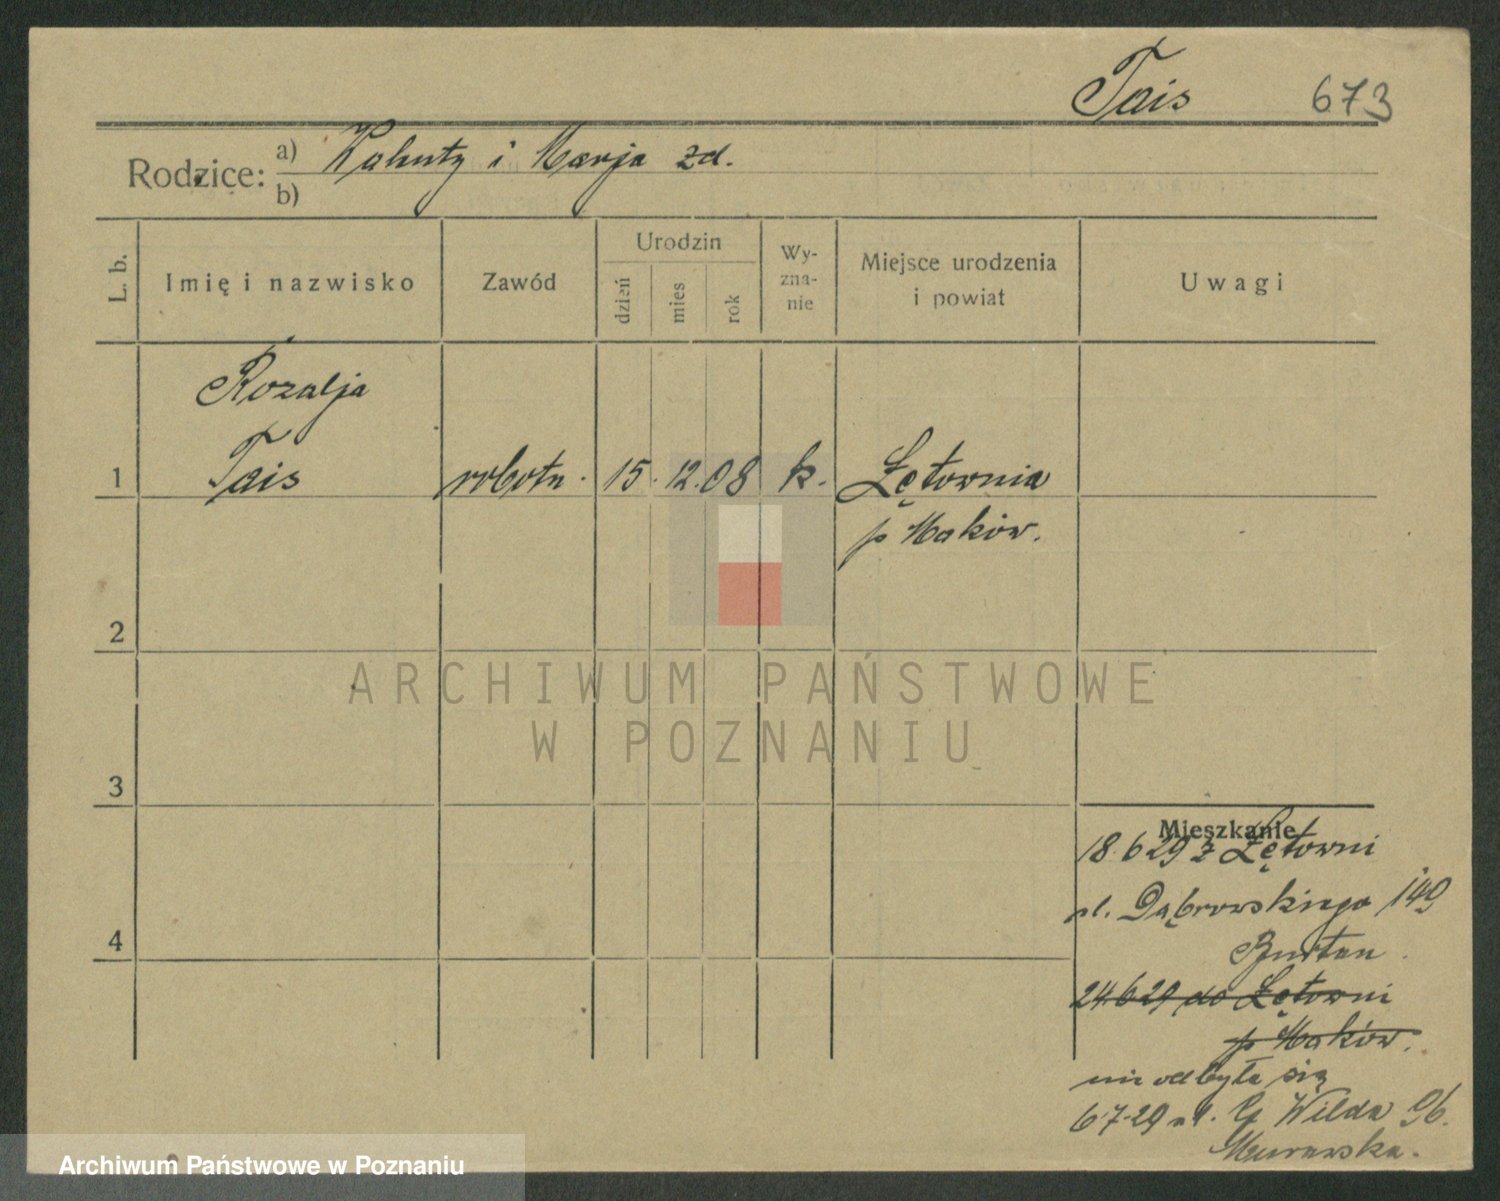 Tais 673
Rodzice: a) Walenty i Marja zd.
b)
L. b. Imię i nazwisko Zawód Urodzin dzień mies rok Wy-zna-nie Miejsce urodzenia i powiat Uwagi
Rozalja
1 Tais robotn. 15. 12. 08 k. Łętownia
p Maków.
2
ARCHIWUM PAŃSTWOWE
W POZNANIU
3
Mieszkanie
18.6 29 z Łętowni
ul. Dąbrowskiego 149
24.6 29 do Łętowni
p Maków.
nie odbyła się
4
6.7.29 ul. G Wilda 96.
Murawska.
Archiwum Państwowe w Poznaniu